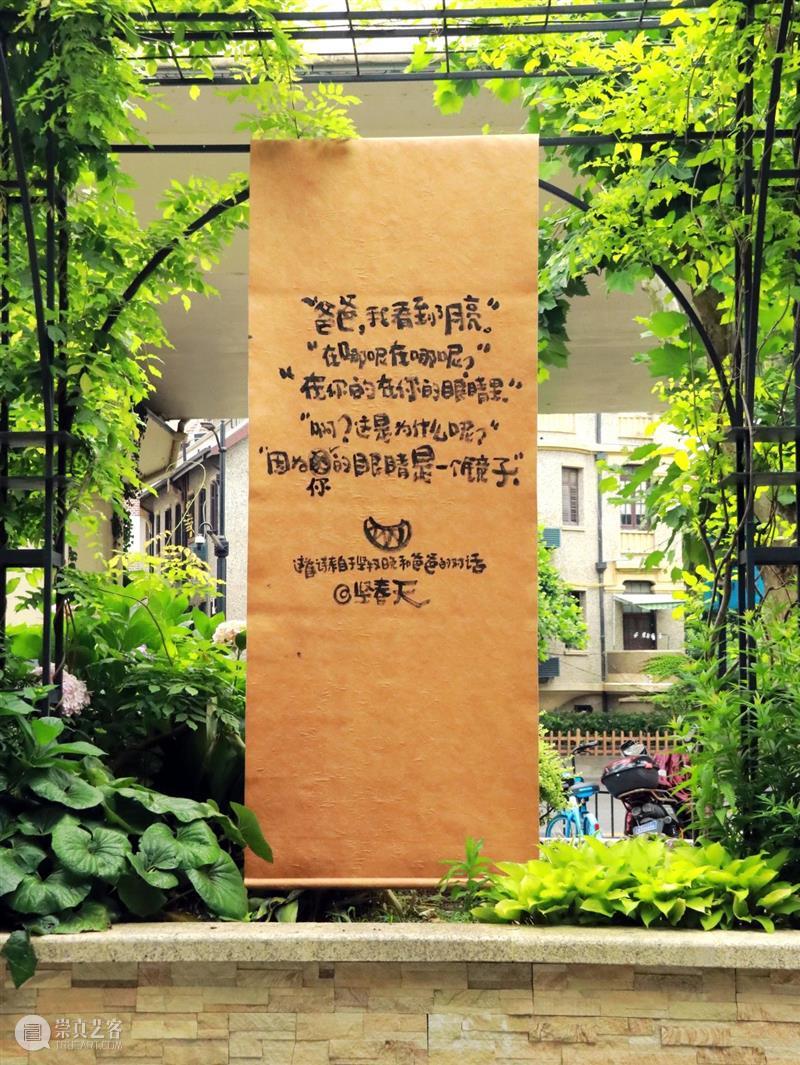 “爸爸,我看到月亮。”
“在哪呢在哪呢?”
“在你的在你的眼睛里”
“啊?这是为什么呢?”
“因为你的眼睛是一个镜子”
这首诗来自于坚叔日记和爸爸的对话
@坚春天
崇真艺客
TRUE-ART.COM